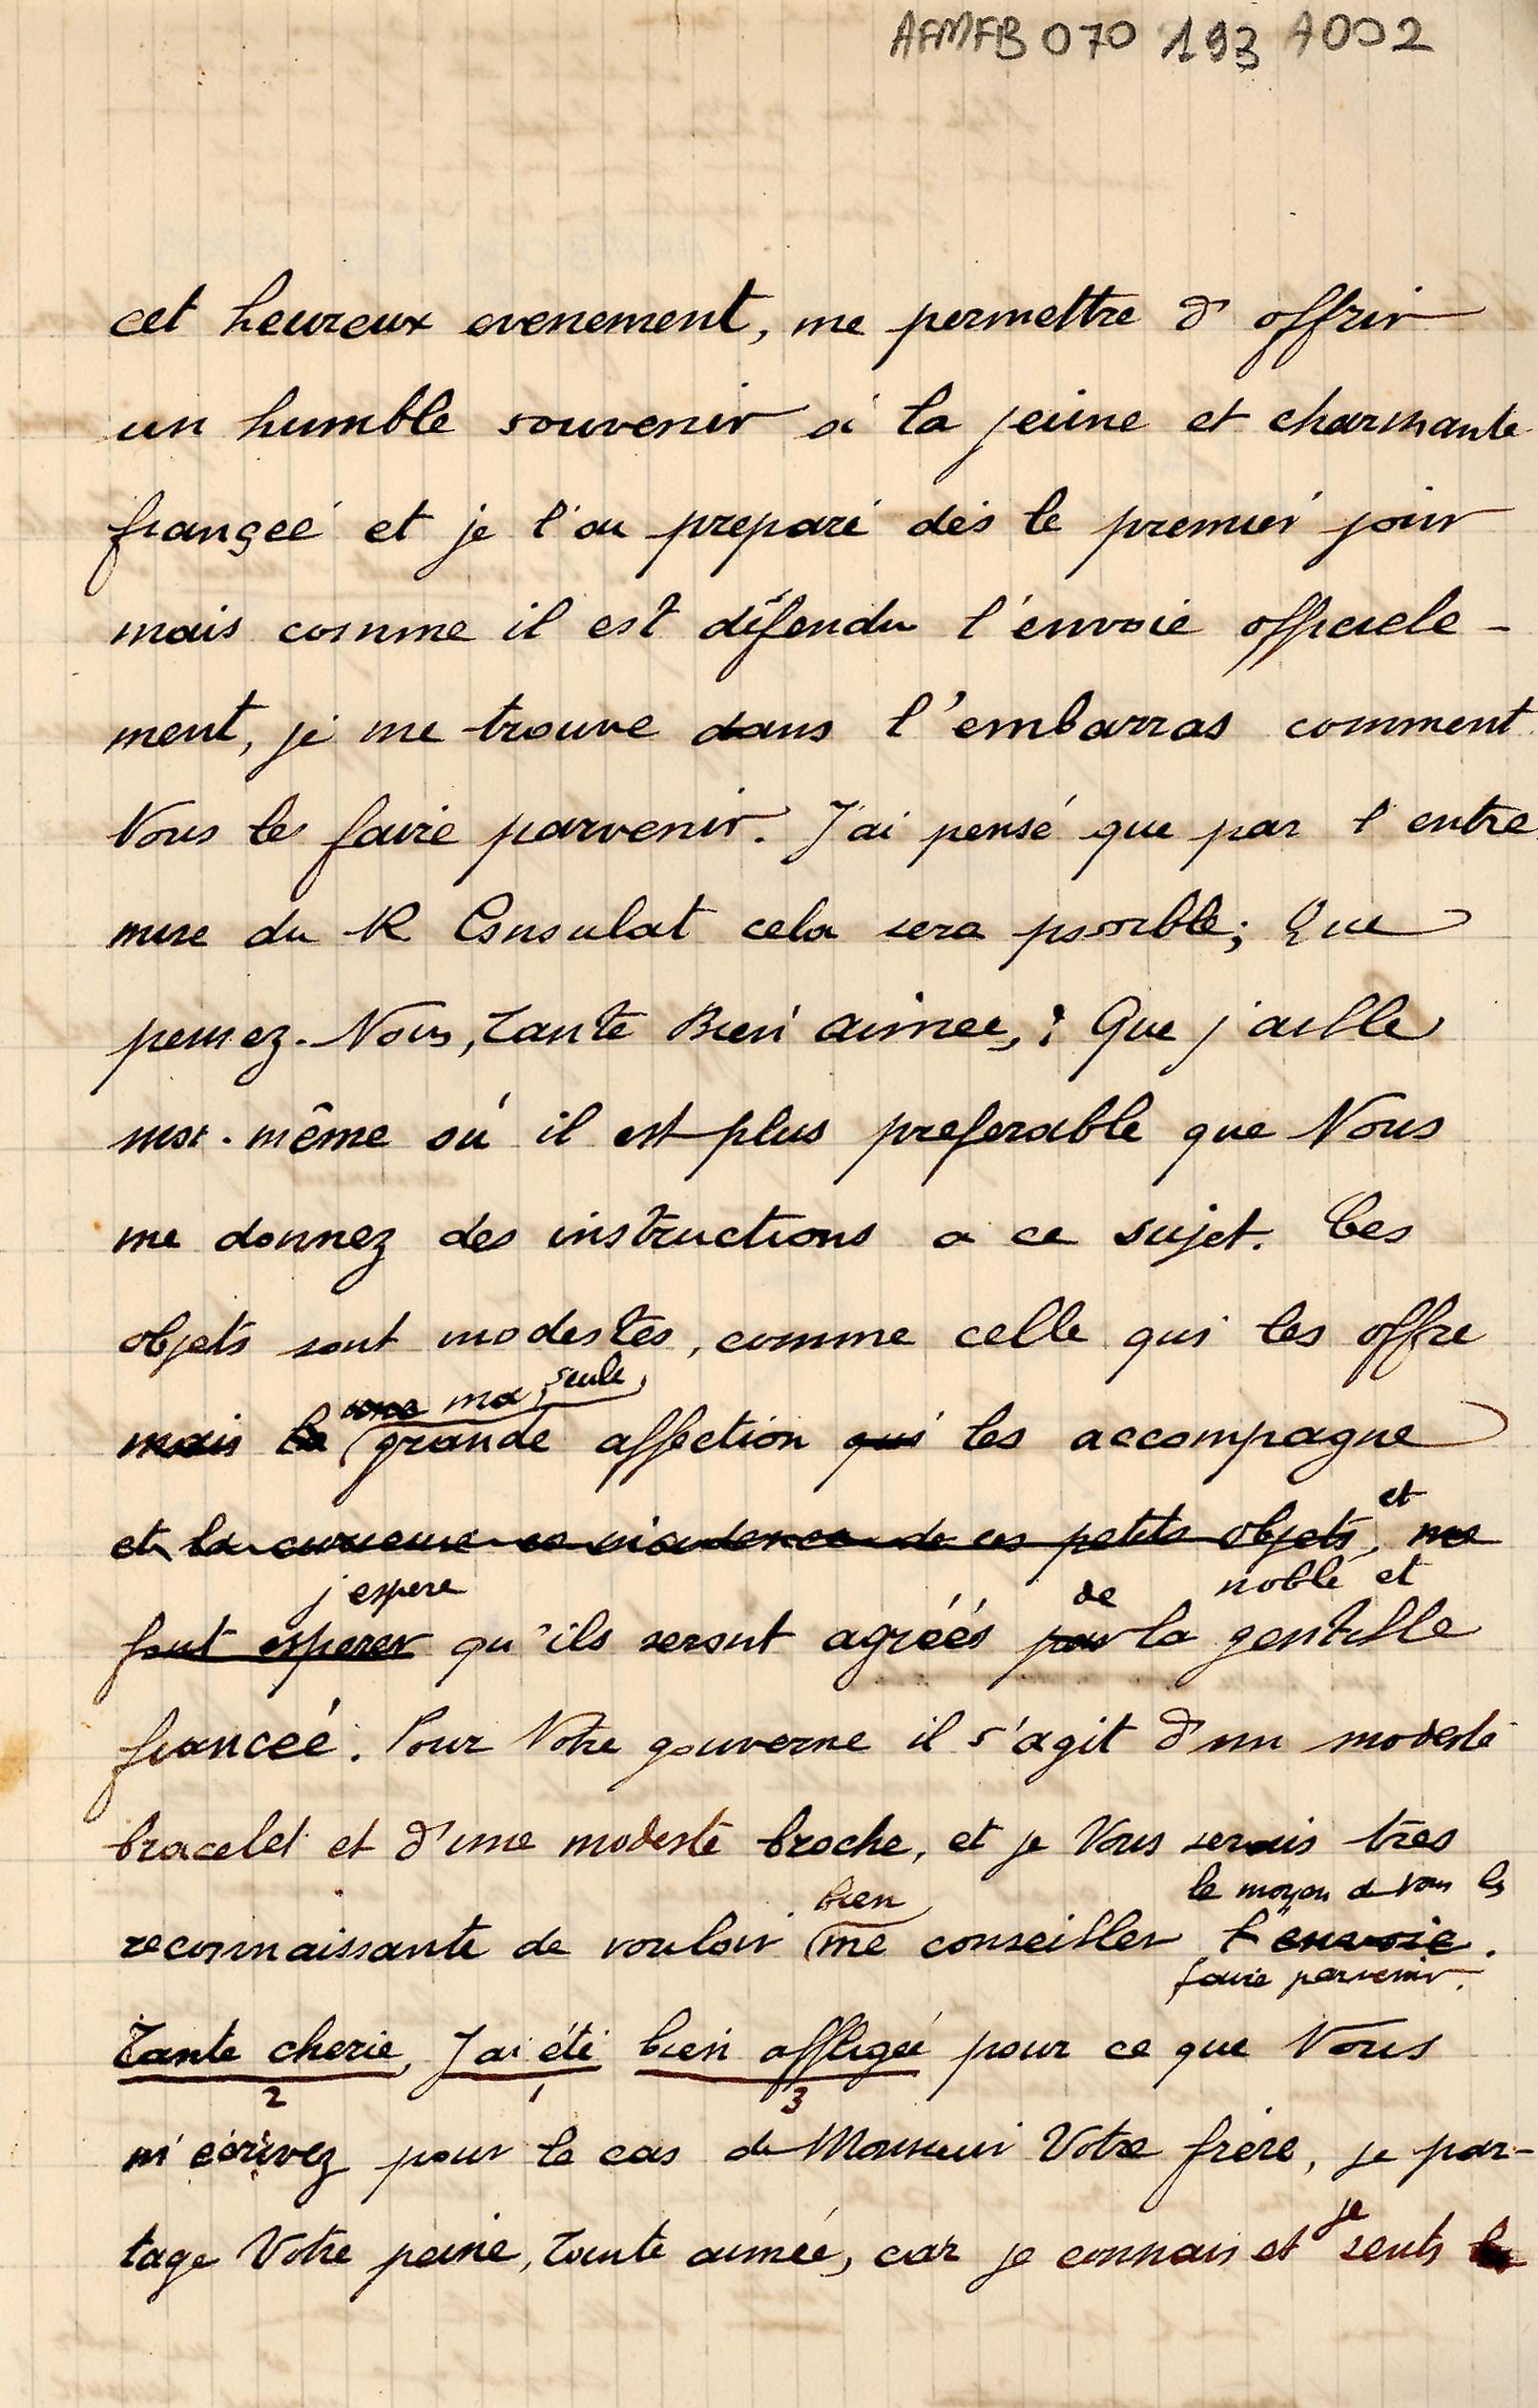 AFMFB 070 193 A002
cet heureux evenement, me permettre d'offrir
un humble souvenir à la jeune et charmante
françeé et je l'ai preparé dès le premier jour
mais comme il est défendu l'envoie officiele-
ment, je me trouve dans l'embarras comment
Vous les faire parvenir. J'ai pensé que par l'entre
mise du R Consulat cela sera possible; Que
pensez-Vous, Tante Bien aimee,? Que j'aille
moi-même où il est plus preferable que Vous
me donnez des instructions a ce sujet. Ces
objets sont modestes, comme celle qui les offre
ma seule,
mais la grande affection qui les accompagne
et
et la curieuse de ces petits objets, me
j'espere de noble et
font esperer qu'ils seront agréés par la gentille
fianceé. Pour Votre gouverne il s'agit d'un modeste
bracelet et d'une modeste broche, et je Vous serais très
bien le moyen de vous les
reconnaissante de vouloir me conseiller l'envoie.
faire parvenir.
Tante cherie, J'ai été bien affligée pour ce que Vous
2 1 3
m'écrivez pour le cas de Monsieur Votre frère, je par-
je
tage Votre peine, Tante aimée, car je connais et sents